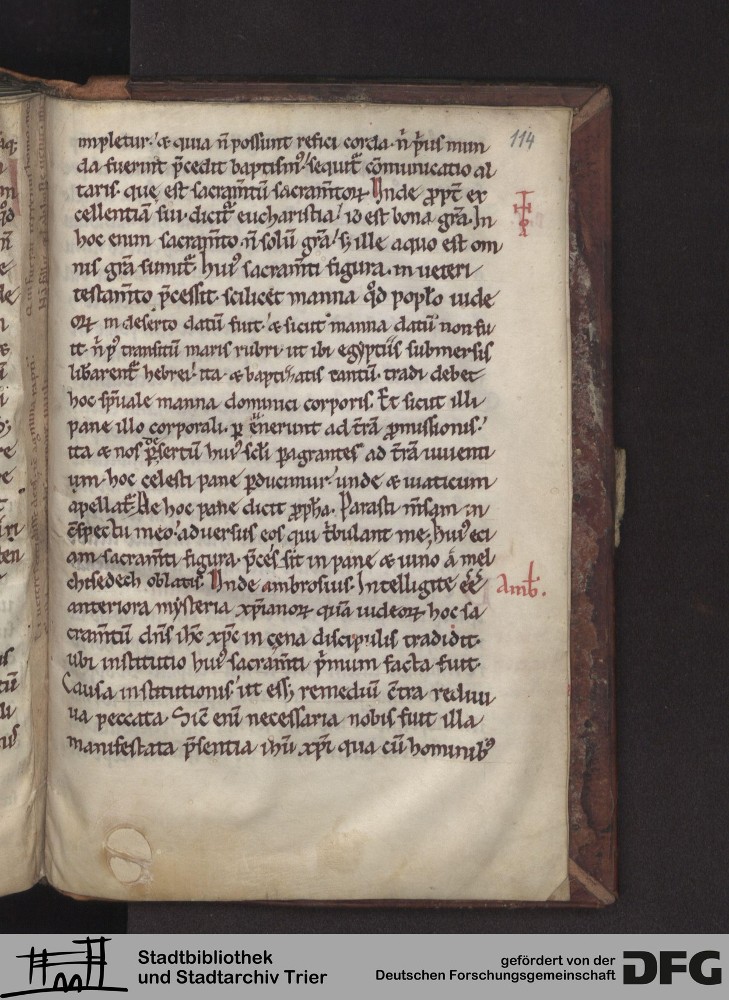 114
impletur. & quia n̄ possunt refici corda. n̄ p̄us mun
da fuerint p̄cedit baptism᷒. sequit᷑ cōmunicatio al
taris. que est sacram̄tū sacram̄toꝝ Unde ꝓpt̄ ex
cellentiam sui. dicit᷑ eucharistia. id est bona gr̄a. In
hoc enim sacram̄to. n̄ solū gr̄a. s; ille a quo est om
nis gr̄a sumit᷑. hui᷒ sacram̄ti figura. in ueteri
testam̄to p̄cessit. scilicet manna qd̄ popl̄o iude
oꝝ in deserto datū fuit. & sicut manna datū non fu
it n̄ p᷒ transitū maris rubri ut ibi egyptiis submersis
lib̄arent᷑ hebrei. ita & baptizatis tantū. tradi debet
hoc sp̄uale manna dominici corporis. Et sicut illi
pane illo corporali. ꝑuenerunt ad t̄rā ꝓmissionis.
ita & nos ꝑ desertū hui᷒ scl̄i ꝑagrantes ad t̄rā uiuenti
um. hoc celesti pane ꝑducimur. unde & uiaticum
apellat᷑. De hoc pane dicit ꝓph̄a. Parasti m̄sam in
c̄spectu meo. aduersus eos qui t̄bulant me; hui᷒ eci
am sacram̄ti figura. p̄cessit in pane & uino a mel
chisedech oblatis. Unde ambrosius. Intelligite ēē
Amb̄.
anteriora mysteria xp̄ianoꝝ quā iudeoꝝ hoc sa
cram̄tū dn̄s ih̄c xp̄c in cena discipulis tradidit.
ubi institutio hui᷒ sacram̄ti p̄mum facta fuit.
Causa institutionis. ut ess; remediū c̄tra rediui
ua peccata. Sic̄ eni̅ necessaria nobis fuit illa
manifestata p̄sentia ih̄u xp̄i qua cū hominib᷒
Stadtbibliothek
und Stadtarchiv Trier
gefördert von der
Deutschen Forschungsgemeinschaft
DFG